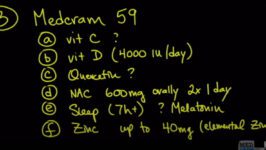 ③ Medcram 59
ⓐ vit C ?
ⓑ vit D (4000 IU/day)
ⓒ Quercetin ?
ⓓ NAC 600mg orally 2x/day
ⓔ Sleep (7h+) ? Melatonin
ⓕ Zinc up to 40mg (elemental Zin